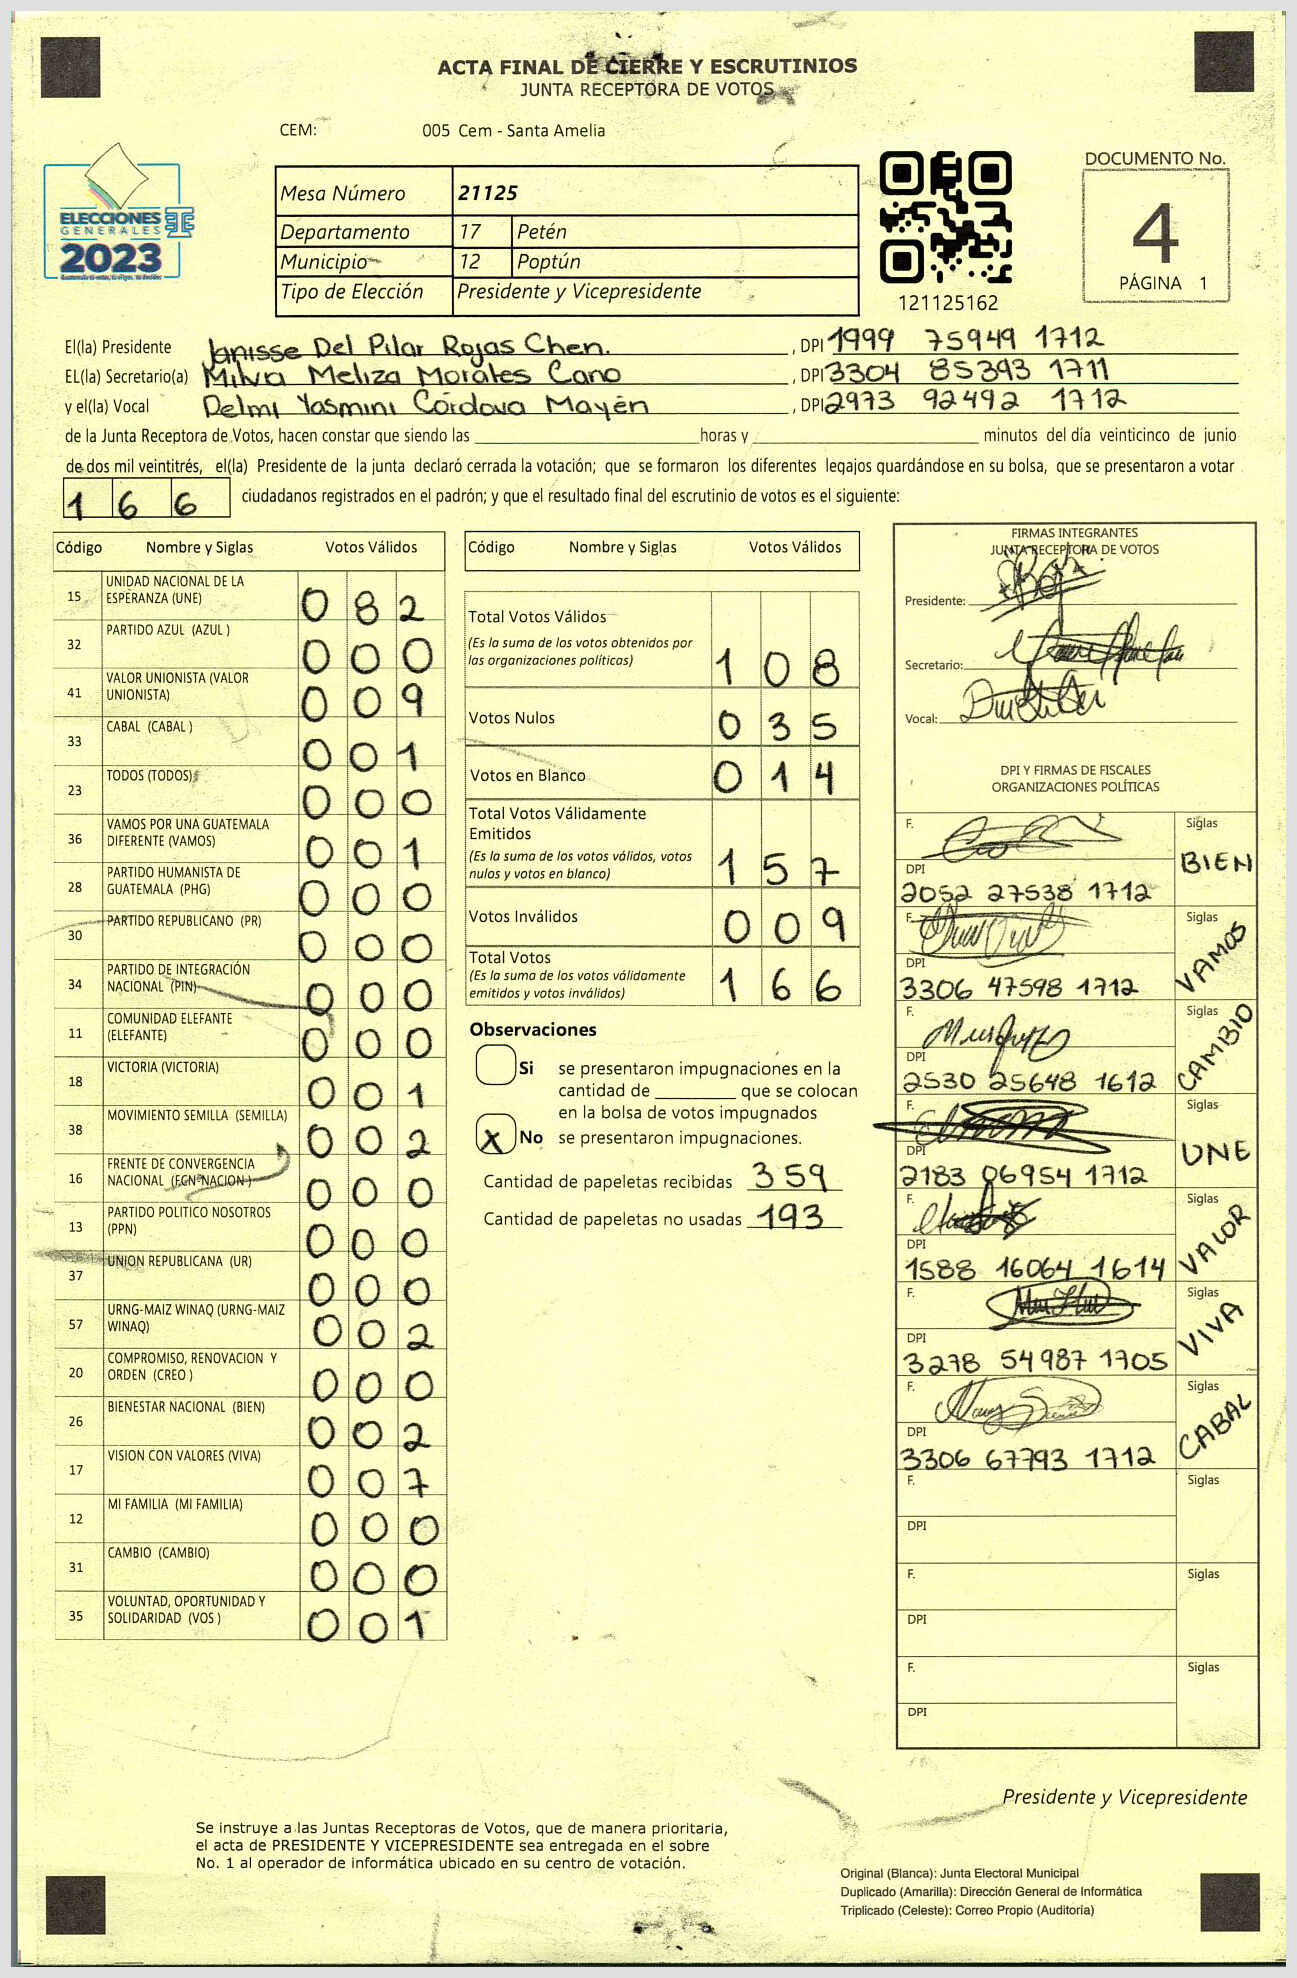 ACTA FINAL DE CIERRE Y ESCRUTINIOS
JUNTA RECEPTORA DE VOTOS
CEM: 005 Cem - Santa Amelia
ELECCIONES
GENERALES
2023
Mesa Número 21125
Departamento 17 Petén
Municipio 12 Poptún
Tipo de Elección Presidente y Vicepresidente
121125162
DOCUMENTO No.
4
PÁGINA 1
El(la) Presidente Janisse Del Pilar Rojas Chen. , DPI 1999 75949 1712
EL(la) Secretario(a) Milva Meliza Morales Cano , DPI 3304 85393 1711
y el(la) Vocal Delmi Yasmini Córdova Mayén , DPI 2973 92492 1712
de la Junta Receptora de Votos, hacen constar que siendo las horas y minutos del día veinticinco de junio
de dos mil veintitrés, el(la) Presidente de la junta declaró cerrada la votación; que se formaron los diferentes legajos guardándose en su bolsa, que se presentaron a votar
166 ciudadanos registrados en el padrón; y que el resultado final del escrutinio de votos es el siguiente:
Código Nombre y Siglas Votos Válidos
15 UNIDAD NACIONAL DE LA ESPERANZA (UNE) 082
32 PARTIDO AZUL (AZUL ) 000
41 VALOR UNIONISTA (VALOR UNIONISTA) 009
33 CABAL (CABAL ) 001
23 TODOS (TODOS) 000
36 VAMOS POR UNA GUATEMALA DIFERENTE (VAMOS) 001
28 PARTIDO HUMANISTA DE GUATEMALA (PHG) 000
30 PARTIDO REPUBLICANO (PR) 000
34 PARTIDO DE INTEGRACIÓN NACIONAL (PIN) 000
11 COMUNIDAD ELEFANTE (ELEFANTE) 000
18 VICTORIA (VICTORIA) 001
38 MOVIMIENTO SEMILLA (SEMILLA) 002
16 FRENTE DE CONVERGENCIA NACIONAL (FCN NACION ) 000
13 PARTIDO POLITICO NOSOTROS (PPN) 000
37 UNION REPUBLICANA (UR) 000
57 URNG-MAIZ WINAQ (URNG-MAIZ WINAQ) 002
20 COMPROMISO, RENOVACION Y ORDEN (CREO ) 000
26 BIENESTAR NACIONAL (BIEN) 002
17 VISION CON VALORES (VIVA) 007
12 MI FAMILIA (MI FAMILIA) 000
31 CAMBIO (CAMBIO) 000
35 VOLUNTAD, OPORTUNIDAD Y SOLIDARIDAD (VOS ) 001
Código Nombre y Siglas Votos Válidos
Total Votos Válidos 108
(Es la suma de los votos obtenidos por
las organizaciones políticas)
Votos Nulos 035
Votos en Blanco 014
Total Votos Válidamente
Emitidos 157
(Es la suma de los votos válidos, votos
nulos y votos en blanco)
Votos Inválidos 009
Total Votos 166
(Es la suma de los votos válidamente
emitidos y votos inválidos)
Observaciones
Si se presentaron impugnaciones en la
cantidad de que se colocan
en la bolsa de votos impugnados
X No se presentaron impugnaciones.
Cantidad de papeletas recibidas 359
Cantidad de papeletas no usadas 193
FIRMAS INTEGRANTES
JUNTA RECEPTORA DE VOTOS
Presidente:
Secretario:
Vocal:
DPI Y FIRMAS DE FISCALES
ORGANIZACIONES POLÍTICAS
F. Siglas BIEN
DPI
2052 27538 1712
F. Siglas VAMOS
DPI
3306 47598 1712
F. Siglas CAMBIO
DPI
2530 25648 1612
F. Siglas UNE
DPI
2183 06954 1712
F. Siglas VALOR
DPI
1588 16064 1614
F. Siglas VIVA
DPI
3278 54987 1705
F. Siglas CABAL
DPI
3306 67793 1712
F. Siglas
DPI
F. Siglas
DPI
F. Siglas
DPI
Presidente y Vicepresidente
Se instruye a las Juntas Receptoras de Votos, que de manera prioritaria,
el acta de PRESIDENTE Y VICEPRESIDENTE sea entregada en el sobre
No. 1 al operador de informática ubicado en su centro de votación.
Original (Blanca): Junta Electoral Municipal
Duplicado (Amarilla): Dirección General de Informática
Triplicado (Celeste): Correo Propio (Auditoría)